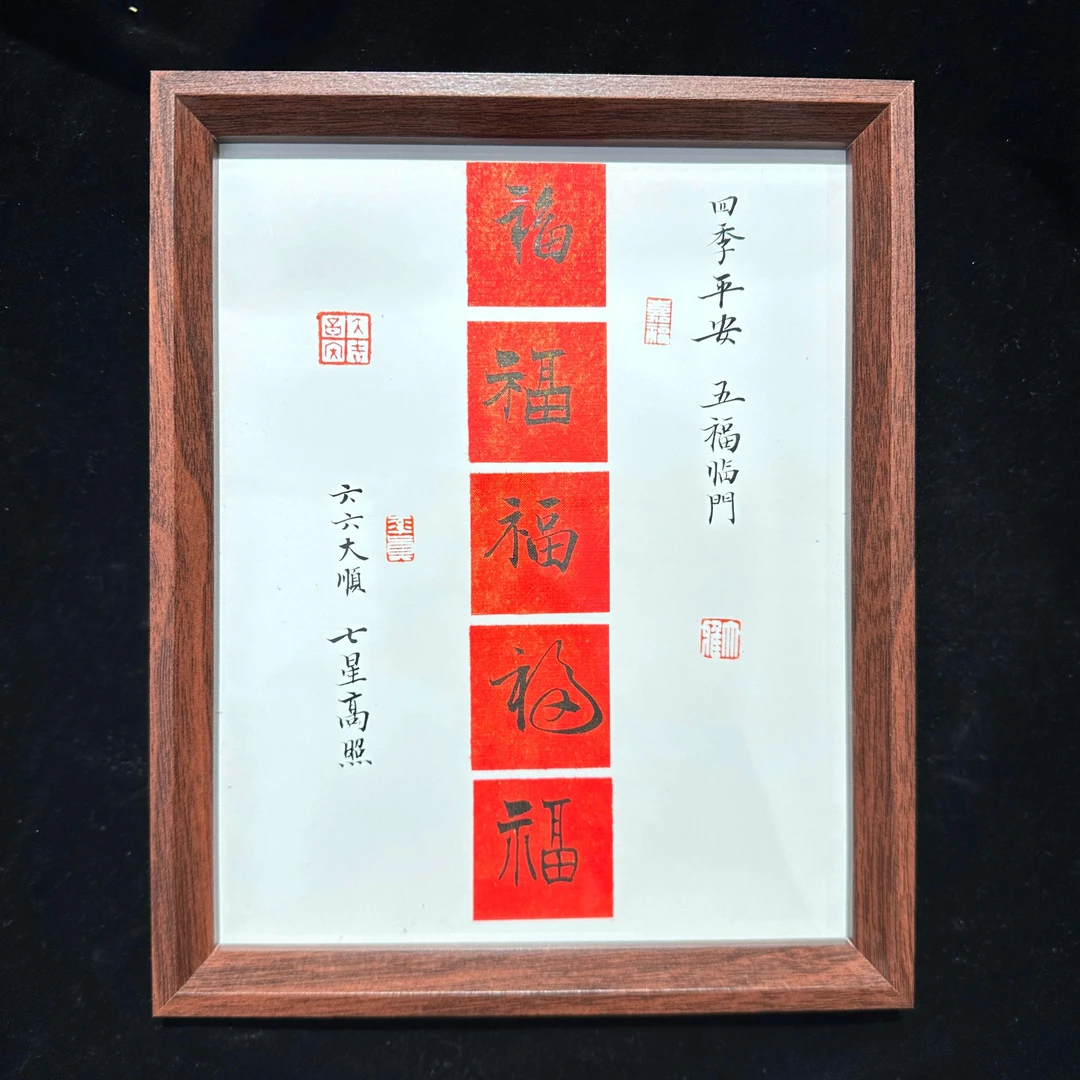 四季平安 五福临門
福
福
福
福
福
六六大順 七星高照